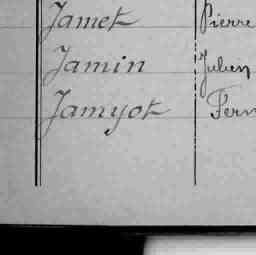 Jamet Pierre
Jamin Julien
Jamyot